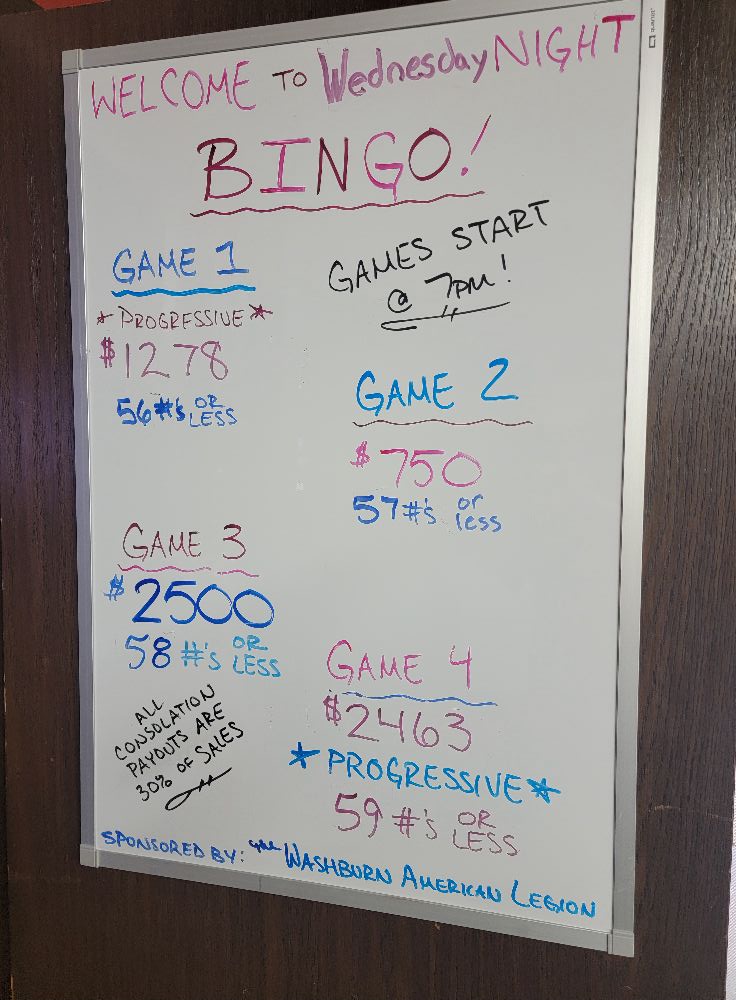 WELCOME TO Wednesday NIGHT
BINGO!
GAMES START
@ 7PM!
GAME 1
* PROGRESSIVE *
$1278
56 #'s OR LESS
GAME 2
$750
57 #'s or less
GAME 3
$2500
58 #'s OR LESS
GAME 4
$2463
* PROGRESSIVE *
59 #'s OR LESS
ALL
CONSOLATION
PAYOUTS ARE
30% OF SALES
SPONSORED BY: the WASHBURN AMERICAN LEGION